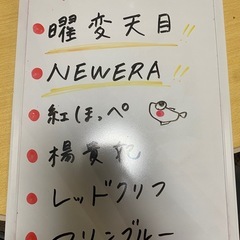 曜変天目!!
NEWERA!!
紅ほっぺ
楊貴妃
レッドクリフ
マリンブルー